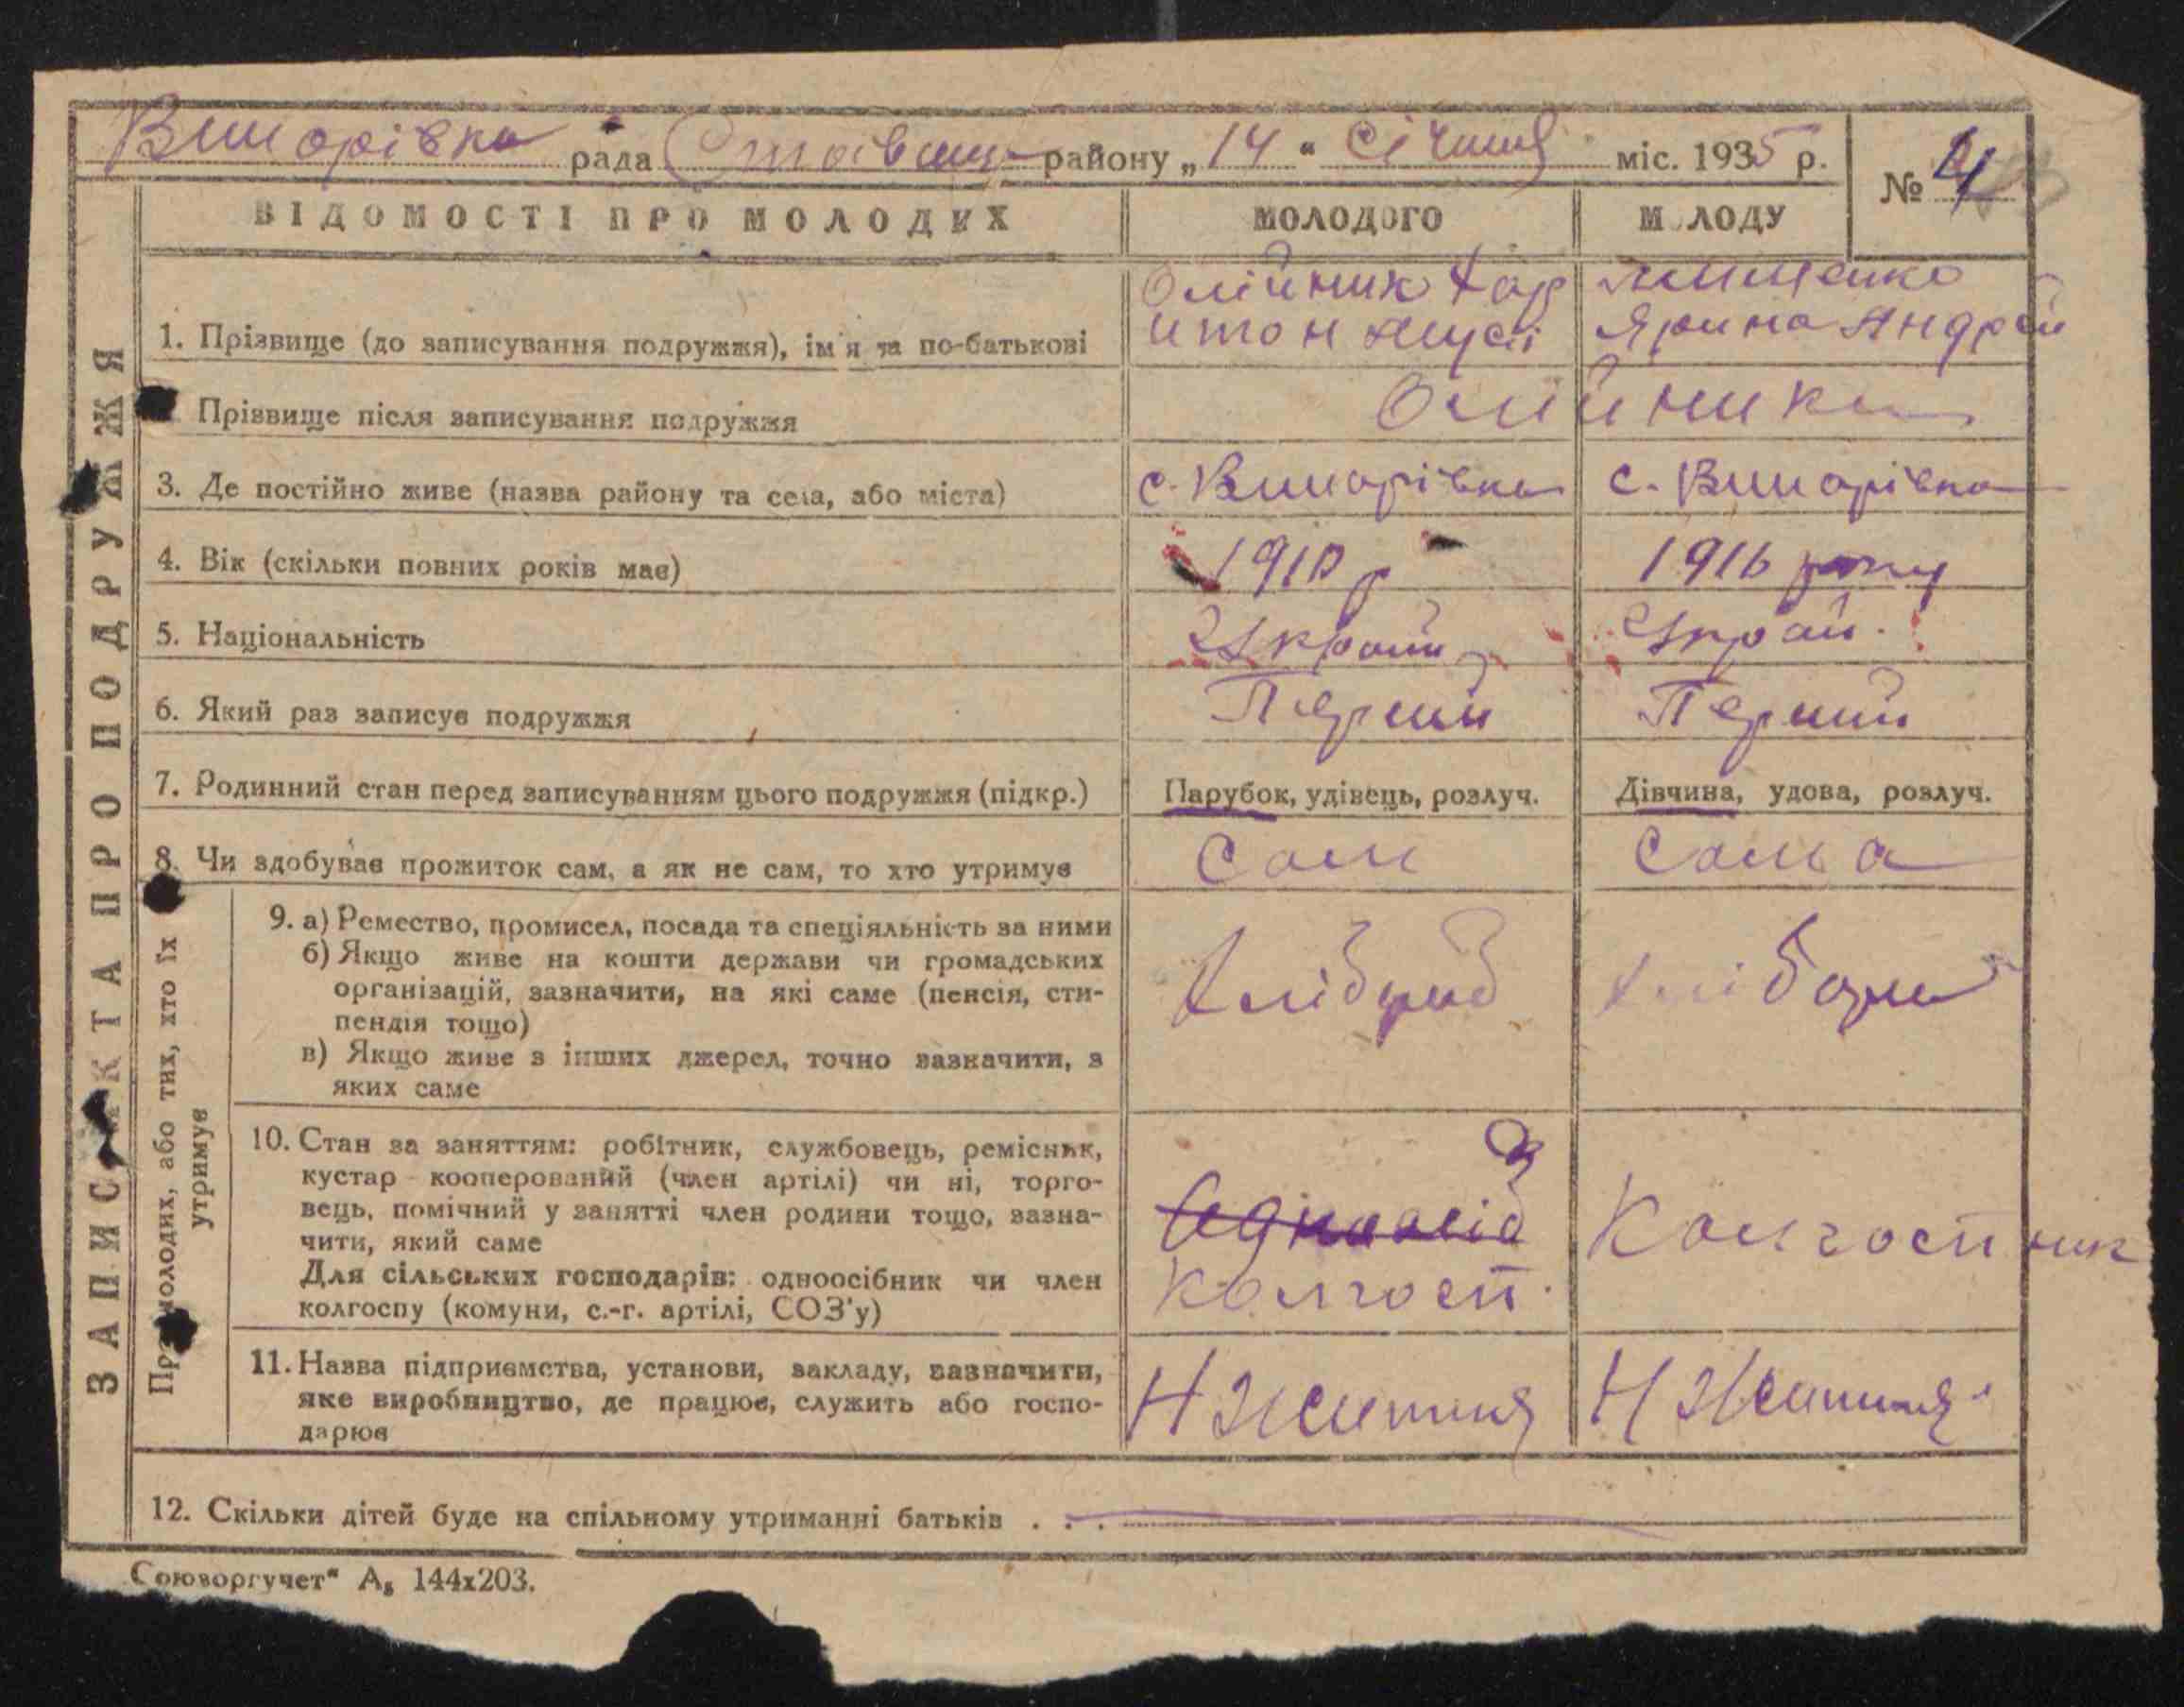 Винарівка рада Ставищ району „14" Січння міс. 1935 р.
№ 4
ЗАПИС АКТА ПРО ПОДРУЖЖЯ
ВІДОМОСТІ ПРО МОЛОДИХ
МОЛОДОГО
МОЛОДУ
1. Прізвище (до записування подружжя), ім'я та по-батькові
Олійник Хар
итон Мусі
Ярина Андрій
Прізвище після записування подружжя
Олійники
3. Де постійно живе (назва району та села, або міста)
с. Винарівка
с. Винарівка
4. Вік (скільки повних років має)
1910 р
1916 року
5. Національність
Украін
Украй.
6. Який раз записує подружжя
Перший
Перший
7. Родинний стан перед записуванням цього подружжя (підкр.)
Парубок, удівець, розлуч.
Дівчина, удова, розлуч.
8. Чи здобуває прожиток сам, а як не сам, то хто утримує
Сам
Сама
Про молодих, або тих, хто їх
утримує
9. а) Ремество, промисел, посада та спеціяльність за ними
б) Якщо живе на кошти держави чи громадських
організацій, зазначити, на які саме (пенсія, сти-
пендія тощо)
в) Якщо живе з інших джерел, точно зазначити, з
яких саме
10. Стан за заняттям: робітник, службовець, ремісник,
кустар - кооперований (член артілі) чи ні, торго-
вець, помічний у занятті член родини тощо, зазна-
чити, який саме
Для сільських господарів: одноосібник чи член
колгоспу (комуни, с.-г. артілі, СОЗ'у)
Колгосп.
Колгоспник
11. Назва підприємства, установи, закладу, зазначити,
яке виробництво, де працює, служить або госпо-
дарює
Н Життя
Н Життя
12. Скільки дітей буде на спільному утриманні батьків . . .
Союзоргучет" А₅ 144х203.